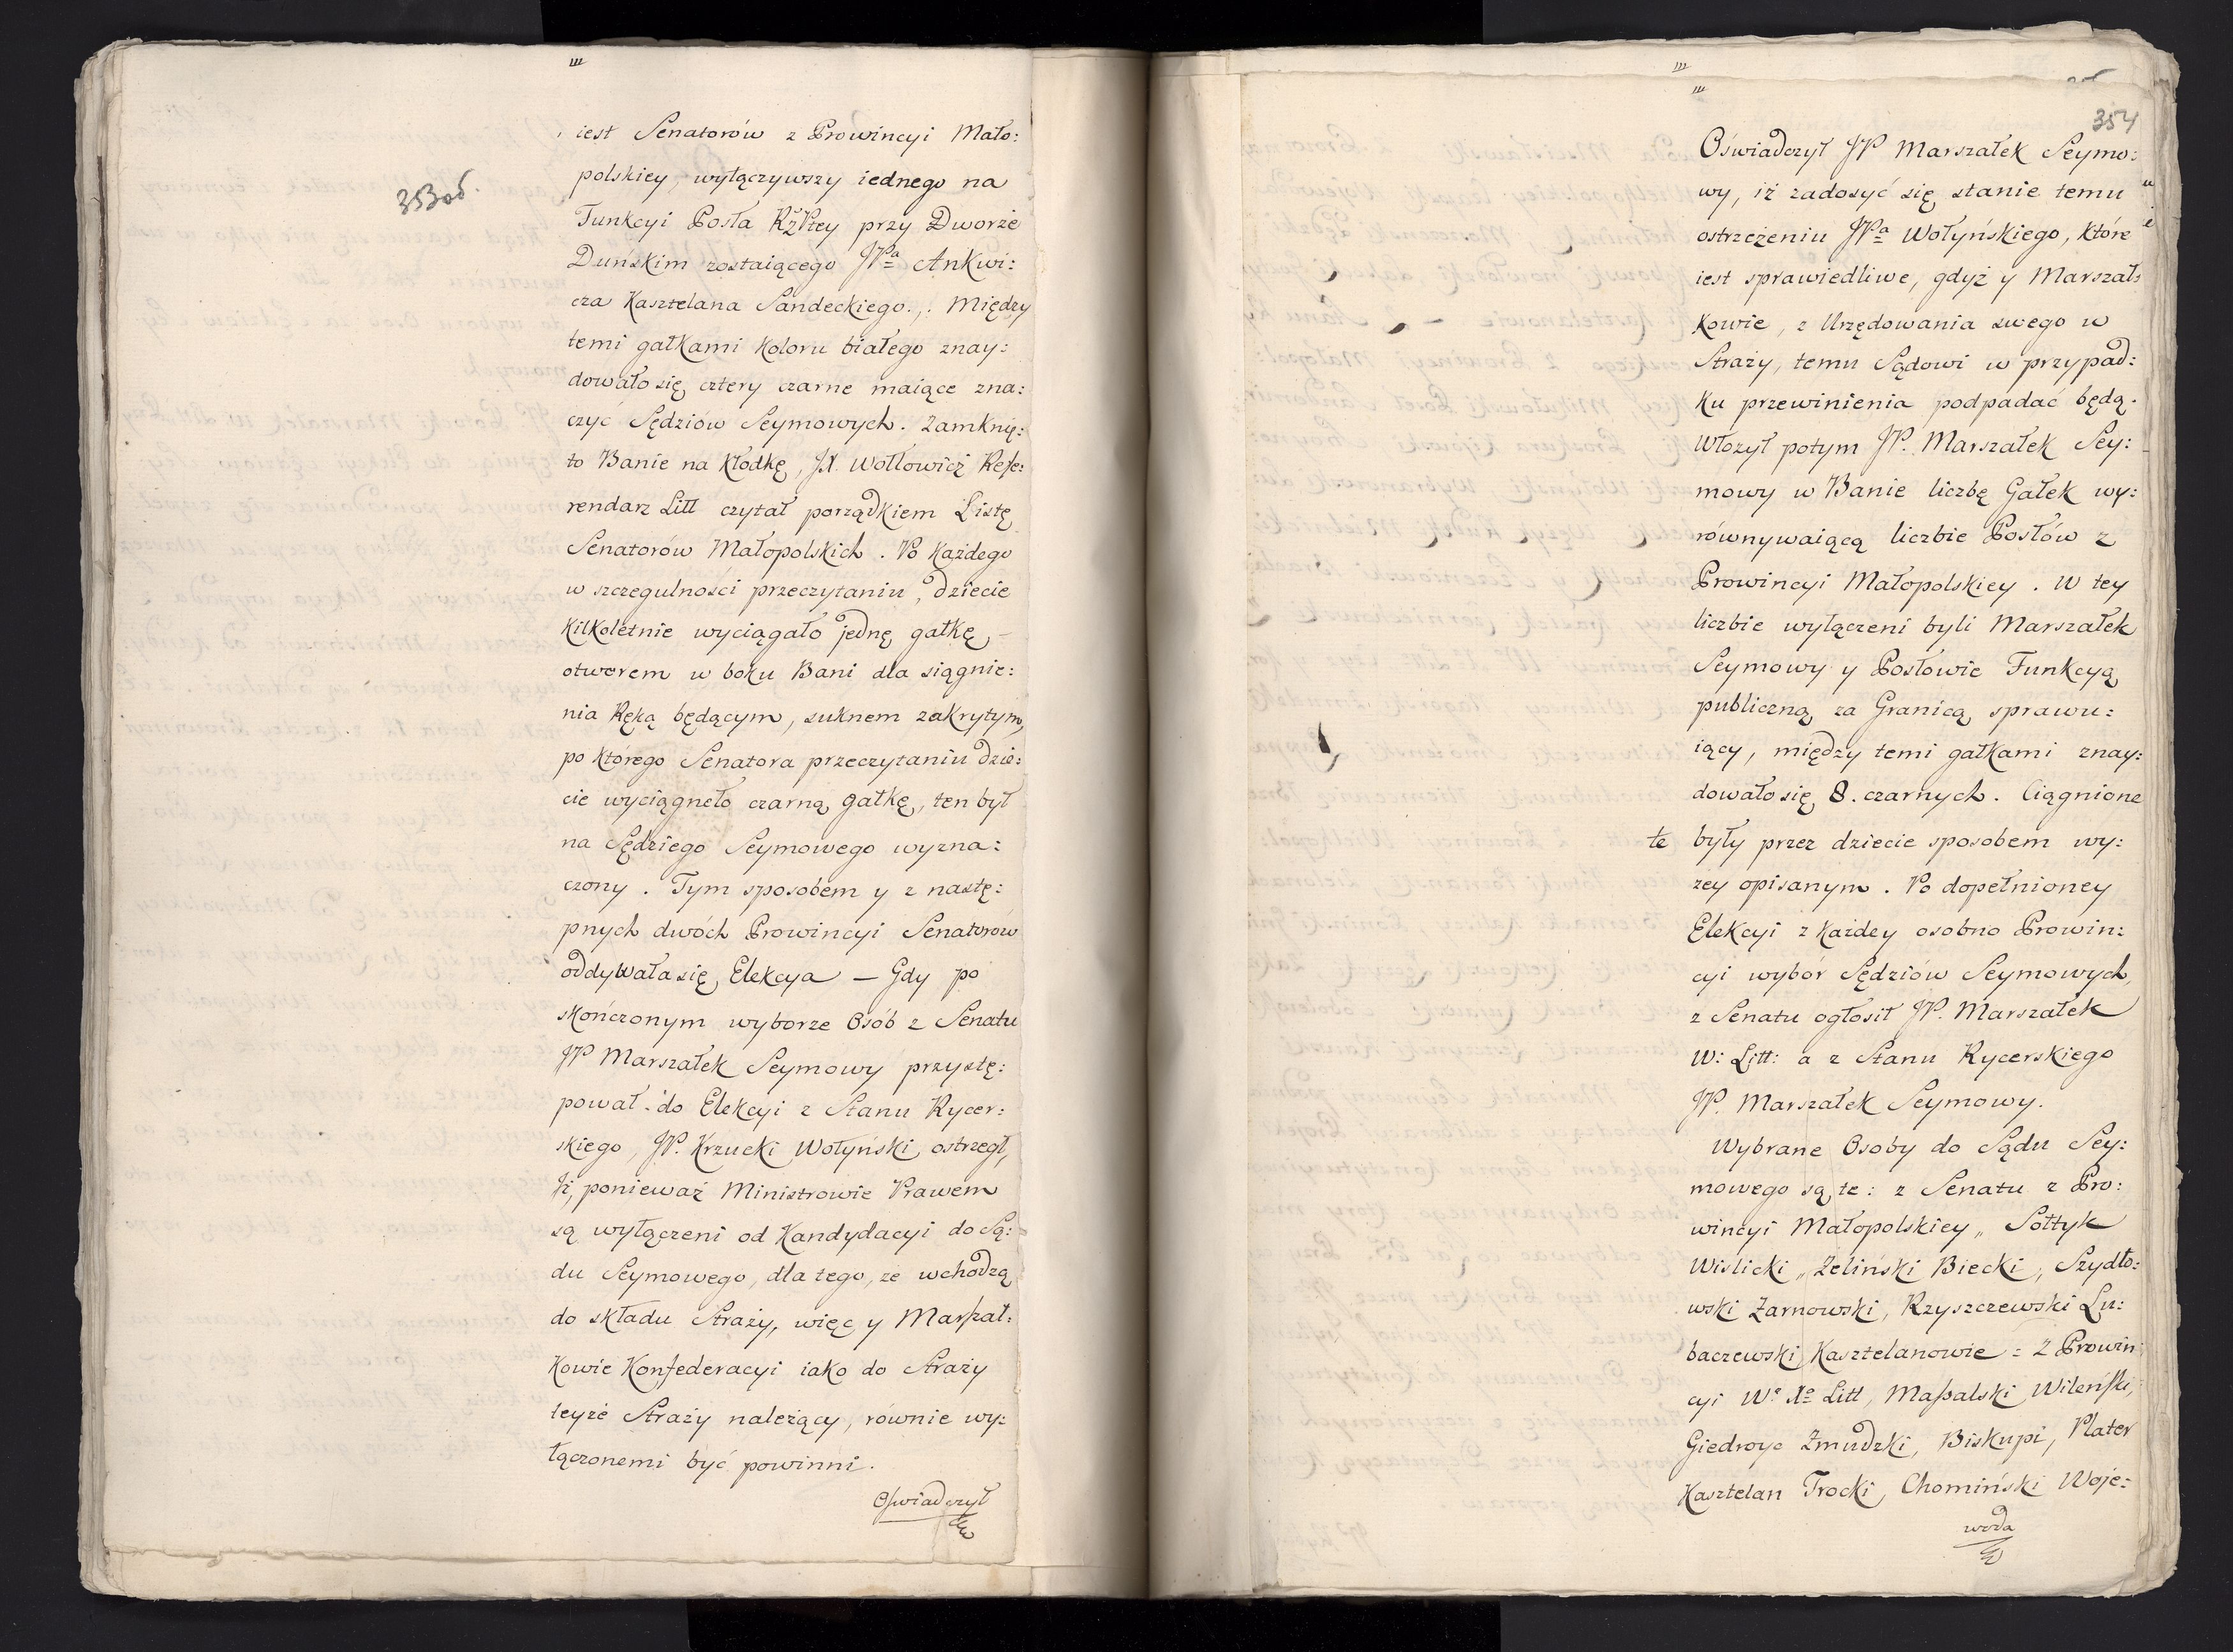 353об.
iest Senatorów z Prowincyi Mało:
polskiey, wyłączywszy iednego na
Funkcyi Posła RzPtey przy Dworze
Duńskim zostaiącego JPa Ankwi:
cza Kasztelana Sandeckiego., . Między
temi gałkami koloru białego znay:
dowało się cztery czarne maiące zna:
czyć Sędziów Seymowych. Zamknię:
to Banie na kłodkę, JX. Wołłowicz Refe:
rendarz Litt czytał porządkiem Listę
Senatorów Małopolskich. Po każdego
w szczegulności przeczytaniu, dziecie
kilkoletnie wyciągało jednę gałkę,
otworem w boku Bani dla siągnie:
nia Ręką będącym, suknem zakrytym,
po którego Senatora przeczytaniu dzie:
cie wyciągneło czarną gałkę, ten był
na Sędziego Seymowego wyzna:
czony. Tym sposobem y z nastę:
pnych dwóch Prowincyi Senatorów
oddywała się Elekcya — Gdy po
skończonym wyborze Osób z Senatu
JP Marszałek Seymowy przystę:
pował do Elekcyi z Stanu Rycer:
skiego, JP. Krzucki Wołyński ostrzegł,
Iż, ponieważ Ministrowie Prawem
są wyłączeni od Kandydacyi do Są:
du Seymowego, dla tego, ze wchodzą
do składu Straży, więc y Marszał:
kowie Konfederacyi iako do Straży
teyże Straży należący, równie wy:
łączonemi być powinni.
Oświadczył
354
Oświadczył JP Marszałek Seymo:
wy, iż zadosyć się stanie temu
ostrzeżeniu JPa Wołyńskiego, które
iest sprawiedliwe, gdyż y Marszał:
kowie, z Urzędowania swego w
Straży, temu Sądowi w przypad:
ku przewinienia podpadać będą.
Włożył potym JP. Marszałek Sey:
mowy w Banie liczbę Gałek wy:
równywaiącą liczbie Posłów z
Prowincyi Małopolskiey. W tey
liczbie wyłączeni byli Marszałek
Seymowy y Posłowie Funkcyą
publiczną za Granicą sprawu:
iący, między temi gałkami znay:
dowało się 8. czarnych. Ciągnione
te były przez dziecie sposobem wy:
zey opisanym. Po dopełnioney
Elekcyi z każdey osobno Prowin:
cyi wybór Sędziów Seymowych,
z Senatu ogłosił JP. Marszałek
W: Litt: a z Stanu Rycerskiego
JP. Marszałek Seymowy.
Wybrane Osoby do Sądu Sey:
mowego są te: z Senatu z Pro:
wincyi Małopolskiey „ Sołtyk
Wislicki „ Zeliński Biecki, Szydło:
wski Zarnowski, Rzyszczewski Lu:
baczewski Kasztelanowie = Z Prowin
cyi Wo Xo Litt, Massalski Wileński,
Giedroyc Zmudzki, Biskupi, Plater
Kasztelan Trocki, Chomiński Woje:
woda